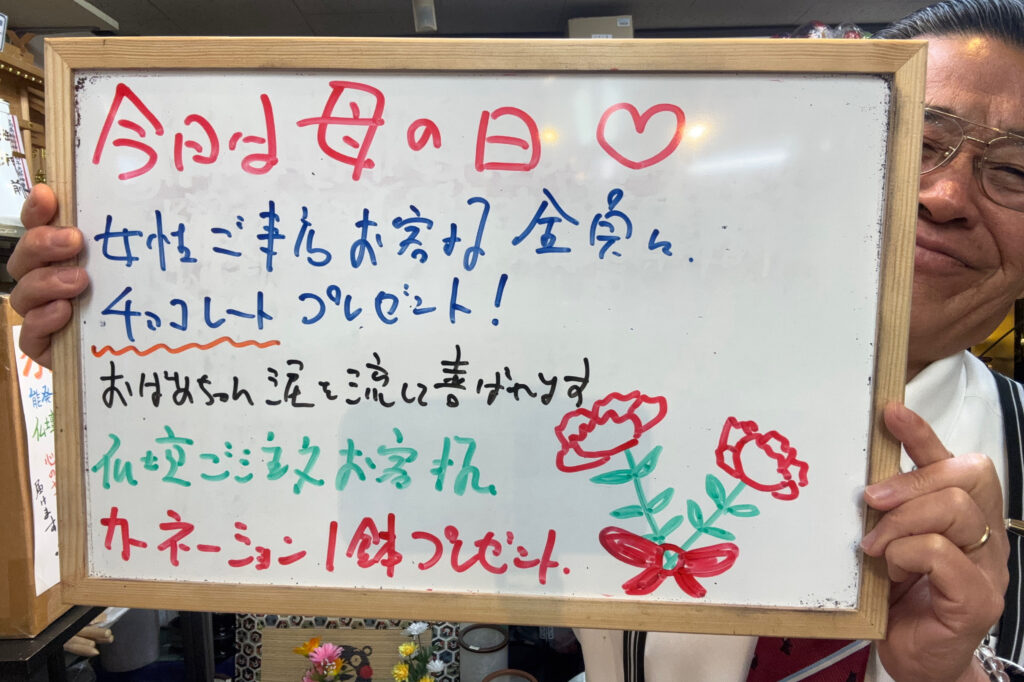 今日は母の日♡
女性ご来店お客様全員に、
チョコレートプレゼント!
おばあちゃん涙を流して喜ばれます
仏壇ご注文お客様、
カーネーション1鉢プレゼント.
能登
仏壇
心の
届けます